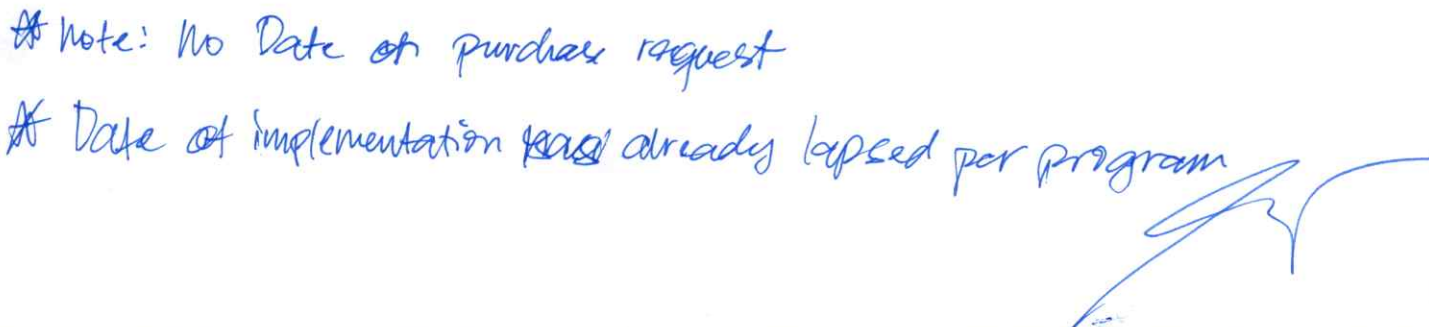 * Note: No Date of purchase request
* Date of implementation has already lapsed per program